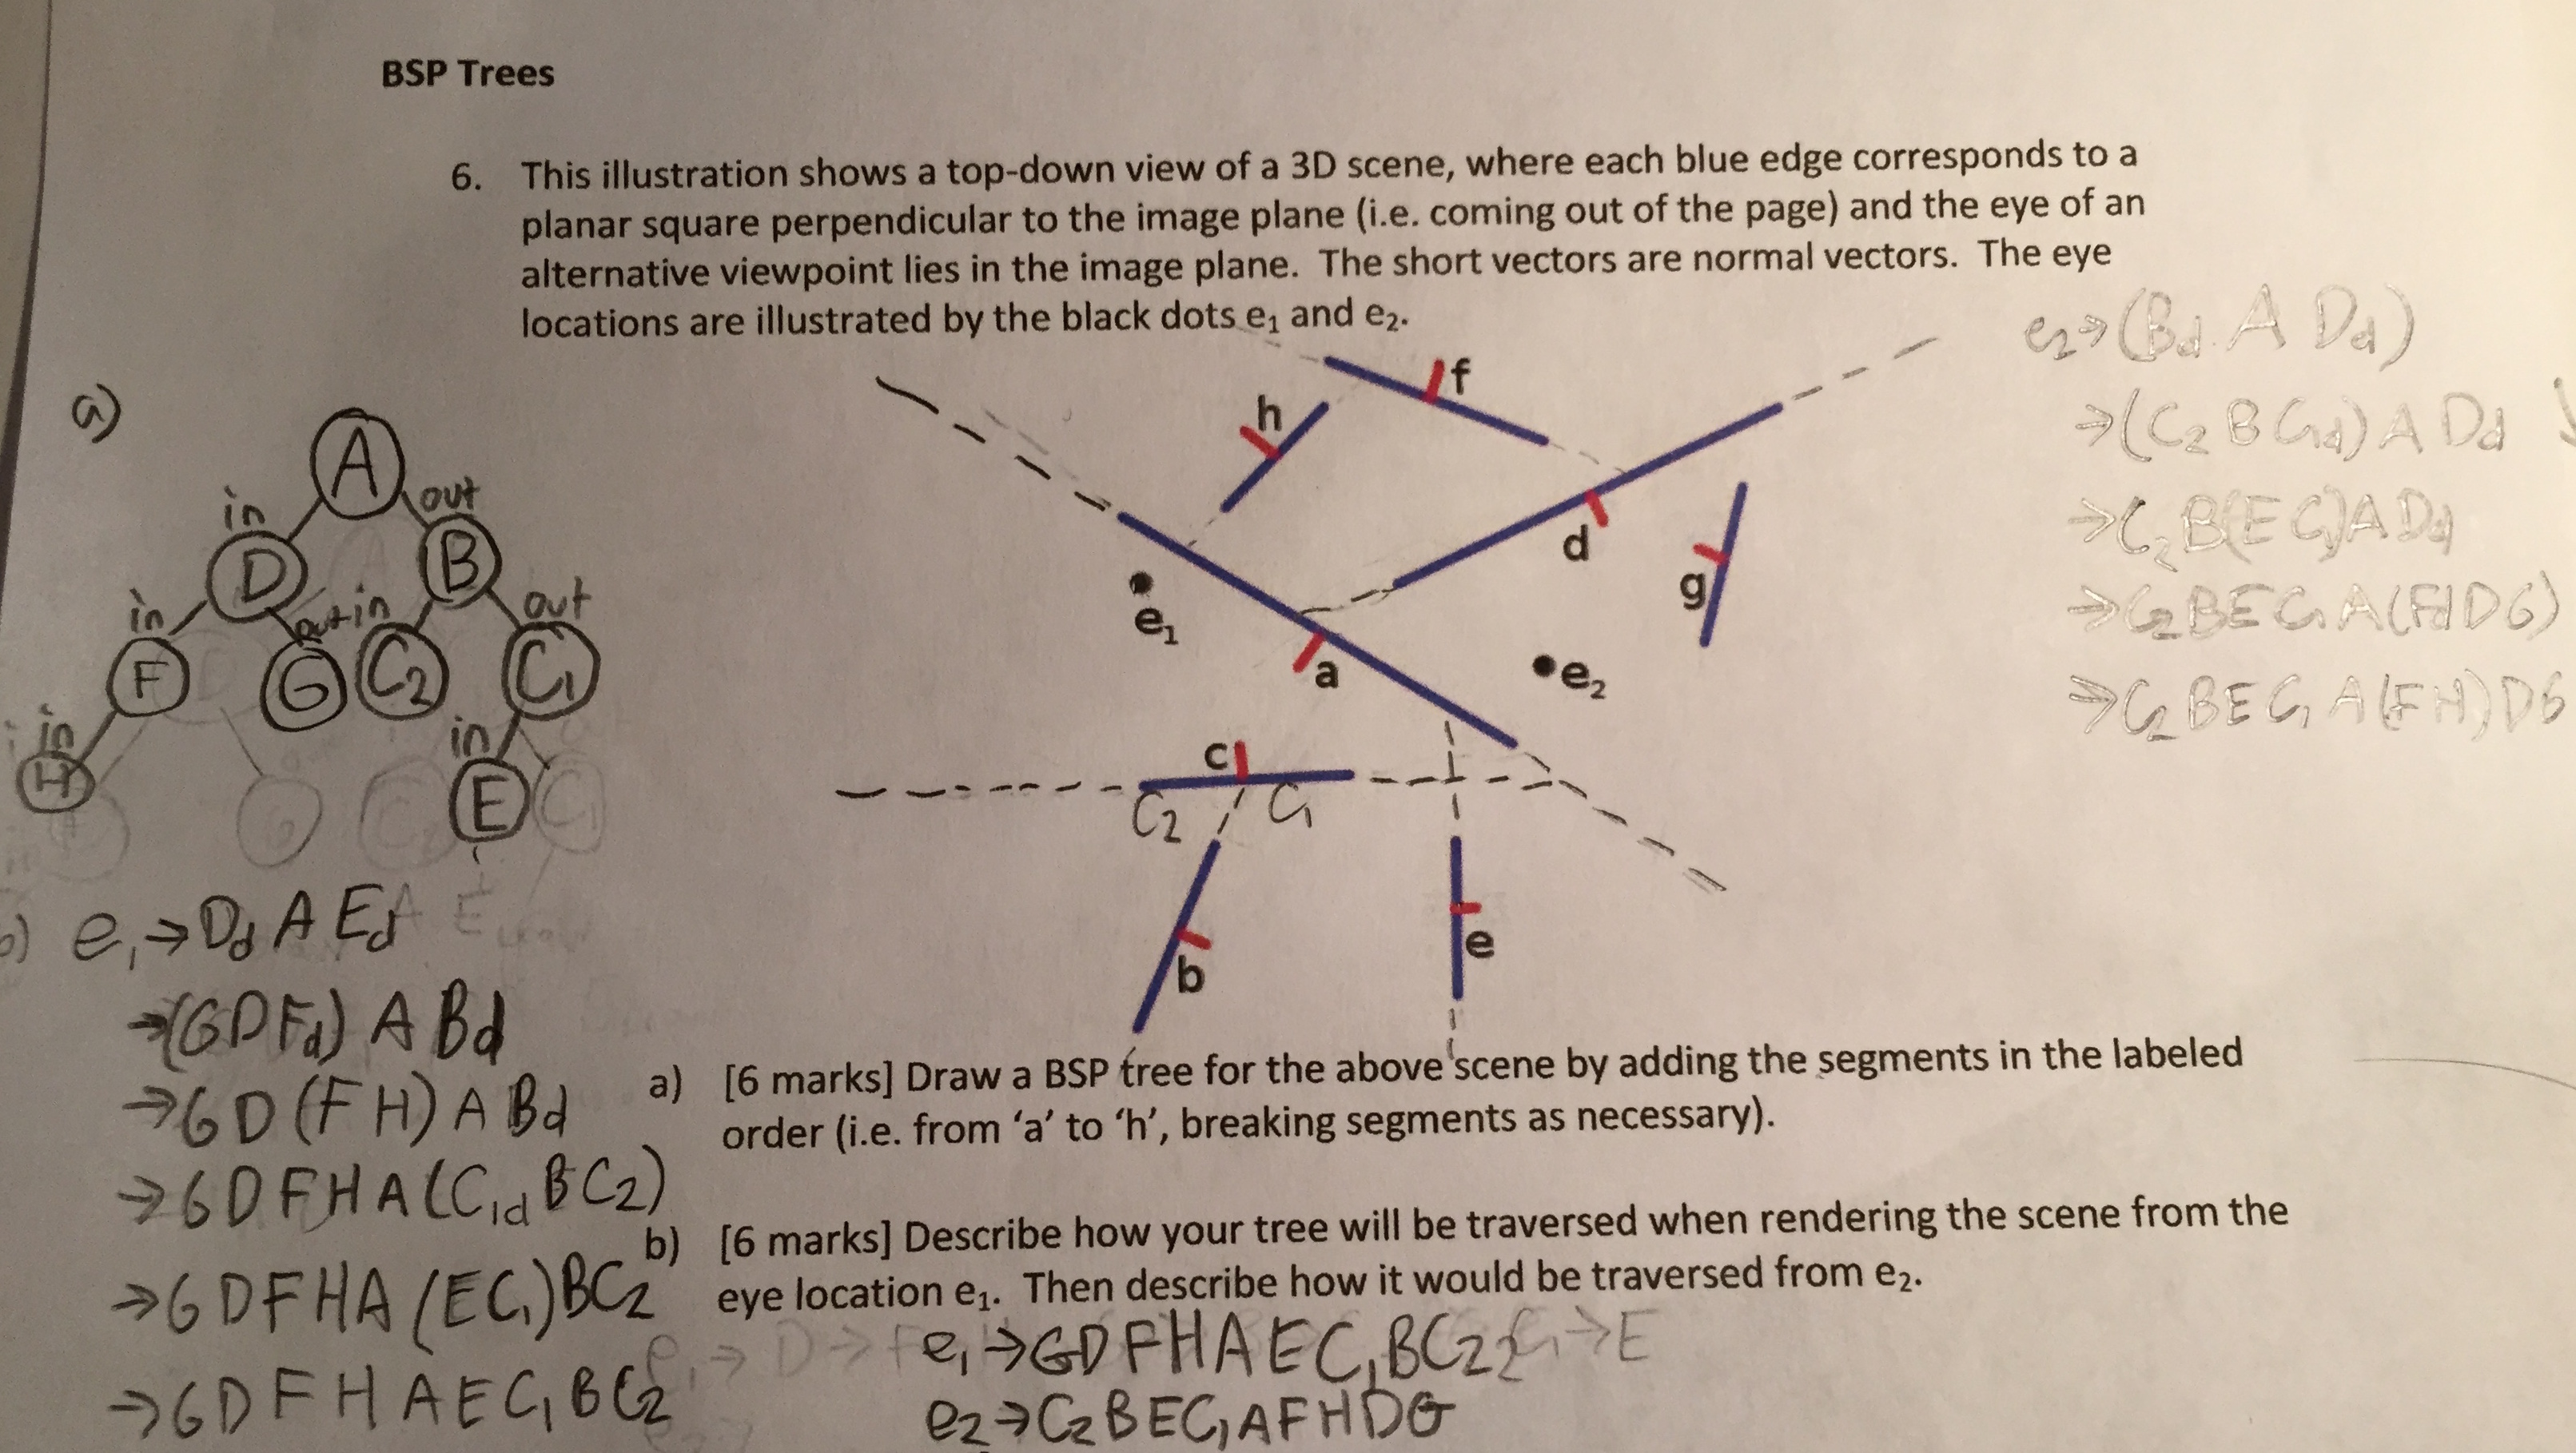 BSP Trees
6. This illustration shows a top-down view of a 3D scene, where each blue edge corresponds to a
planar square perpendicular to the image plane (i.e. coming out of the page) and the eye of an
alternative viewpoint lies in the image plane. The short vectors are normal vectors. The eye
locations are illustrated by the black dots e₁ and e₂.
e₂→(Bd A Dd)
→(C₂ B C₁d) A Dd
→C₂ B(E C₁)A Dd
→C₂ B E C₁ A(Fd D G)
→C₂ B E C₁ A (F H) D G
a)
A
in
out
D
B
in
out
in
out
F
G
C₂
C₁
in
in
H
E
f
h
d
g
e₁
a
e₂
c
C₂
C₁
b
e
b) e₁→Dd A Ed
→(G D Fd) A Bd
→G D (F H) A Bd
→G D F H A (C₁d B C₂)
→G D F H A (E C₁) B C₂
→G D F H A E C₁ B C₂
a) [6 marks] Draw a BSP tree for the above scene by adding the segments in the labeled
order (i.e. from ‘a’ to ‘h’, breaking segments as necessary).
b) [6 marks] Describe how your tree will be traversed when rendering the scene from the
eye location e₁. Then describe how it would be traversed from e₂.
e₁→G D F H A E C₁ B C₂
e₂→C₂ B E C₁ A F H D G